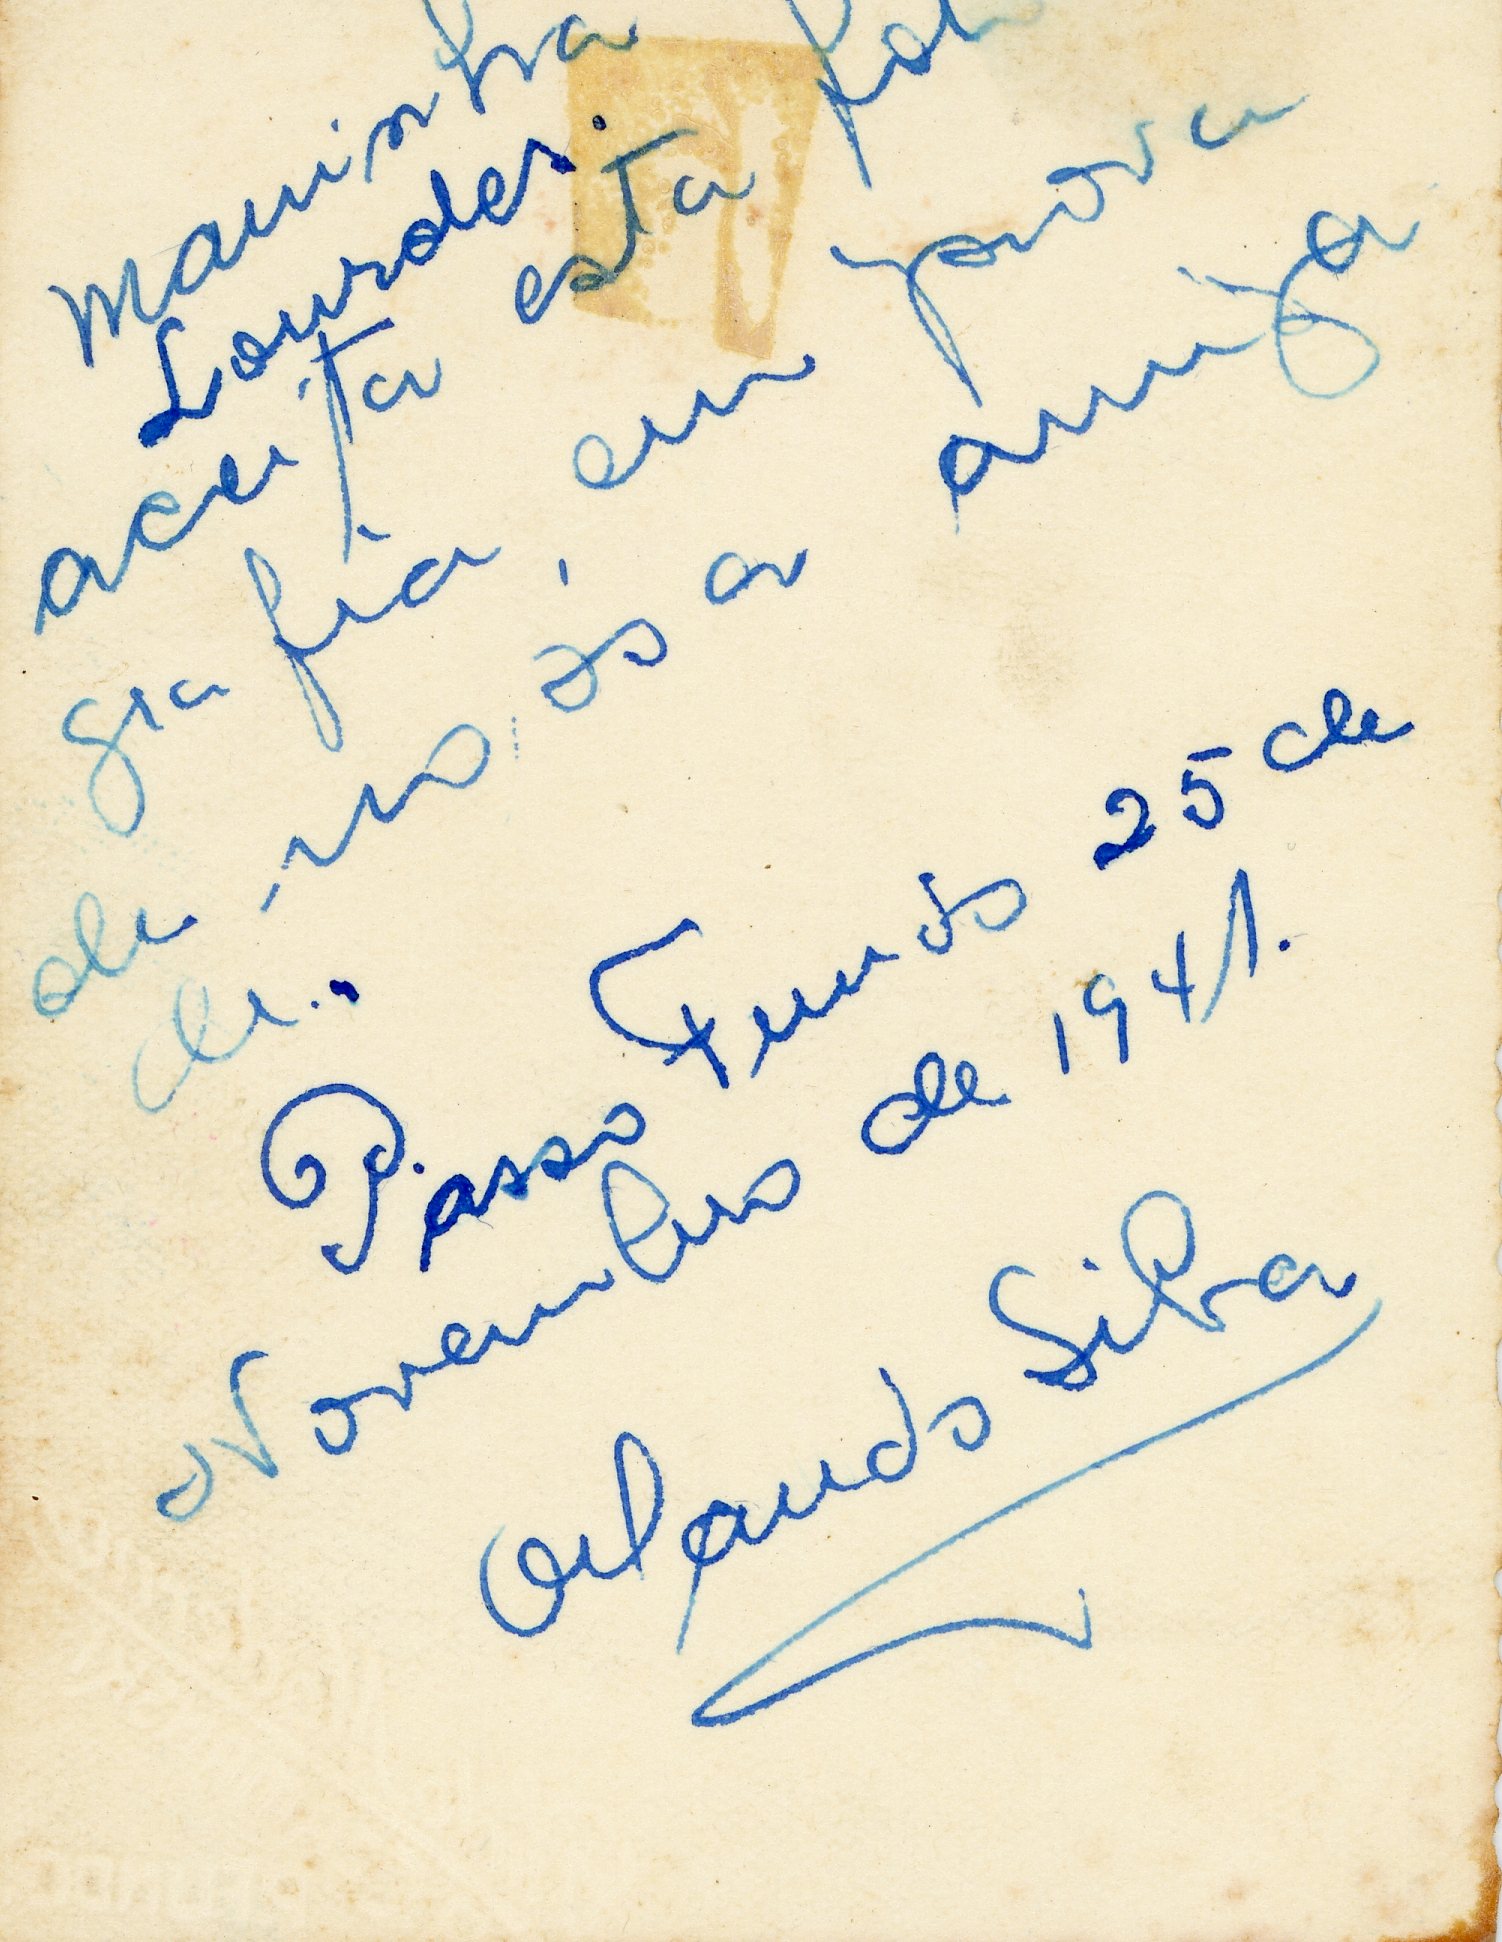 Maninha
Lourdes.
aceita esta foto
grafia, em prova
de nossa amiza
de..
Passo Fundo 25 de
Novembro de 1941.
Orlando Silva